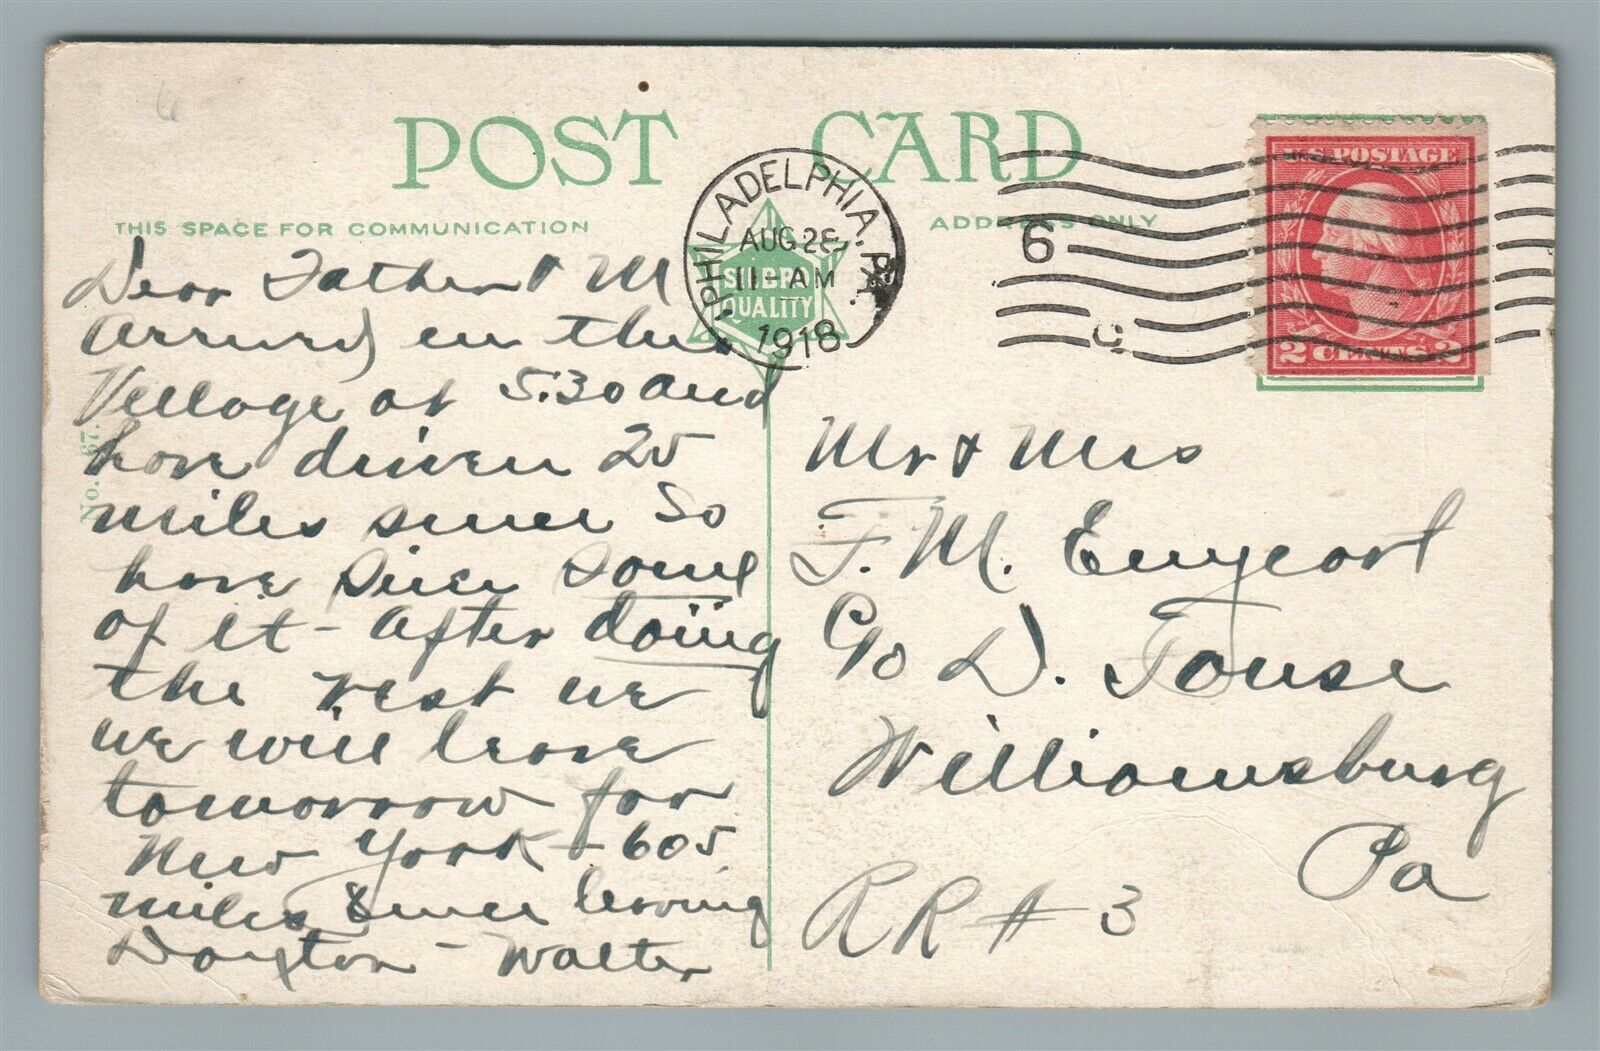 POST CARD
THIS SPACE FOR COMMUNICATION
ADDRESS ONLY
PHILADELPHIA, PA.
AUG 28
11-AM
1918
6
C
U.S. POSTAGE
2 CENTS 2
QUALITY
No. 67.
Dear Father & M
Arrived in the
Village at 5:30 and
have driven 25
miles since So
have seen some
of it - After doing
the rest we
we will leave
tomorrow for
New York - 605
miles since leaving
Dayton - Walter
Mr & Mrs
F. M. Emyeart
C/o D. Fouse
Williamsburg
Pa
RR # 3